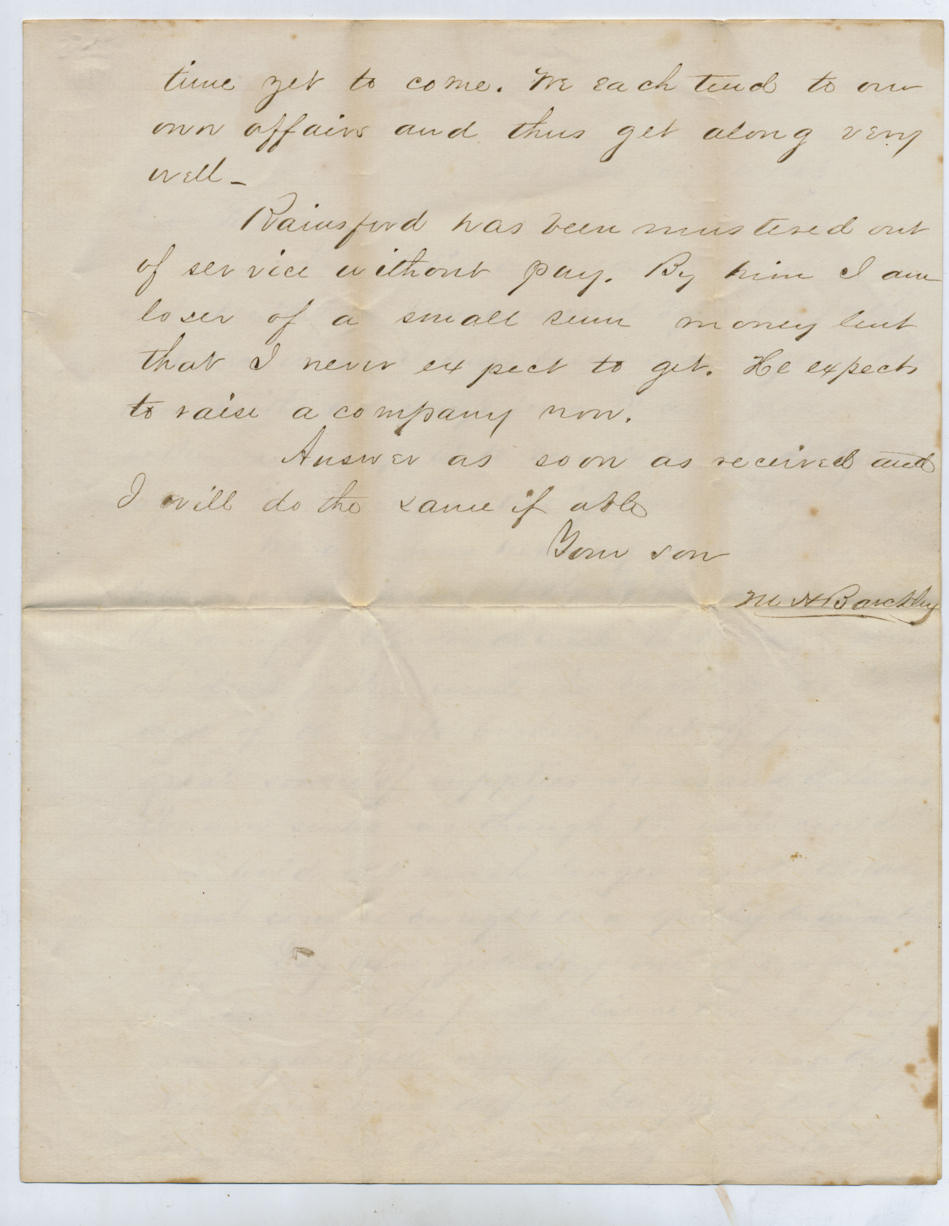 time yet to come. We each tend to our
own affairs and thus get along very
well -
Rainsford has been mustered out
of service without pay. By him I am
loser of a small sum money lent
that I never expect to get. He expects
to raise a company now.
Answer as soon as received and
I will do the same if able
Your son
M H Barckley